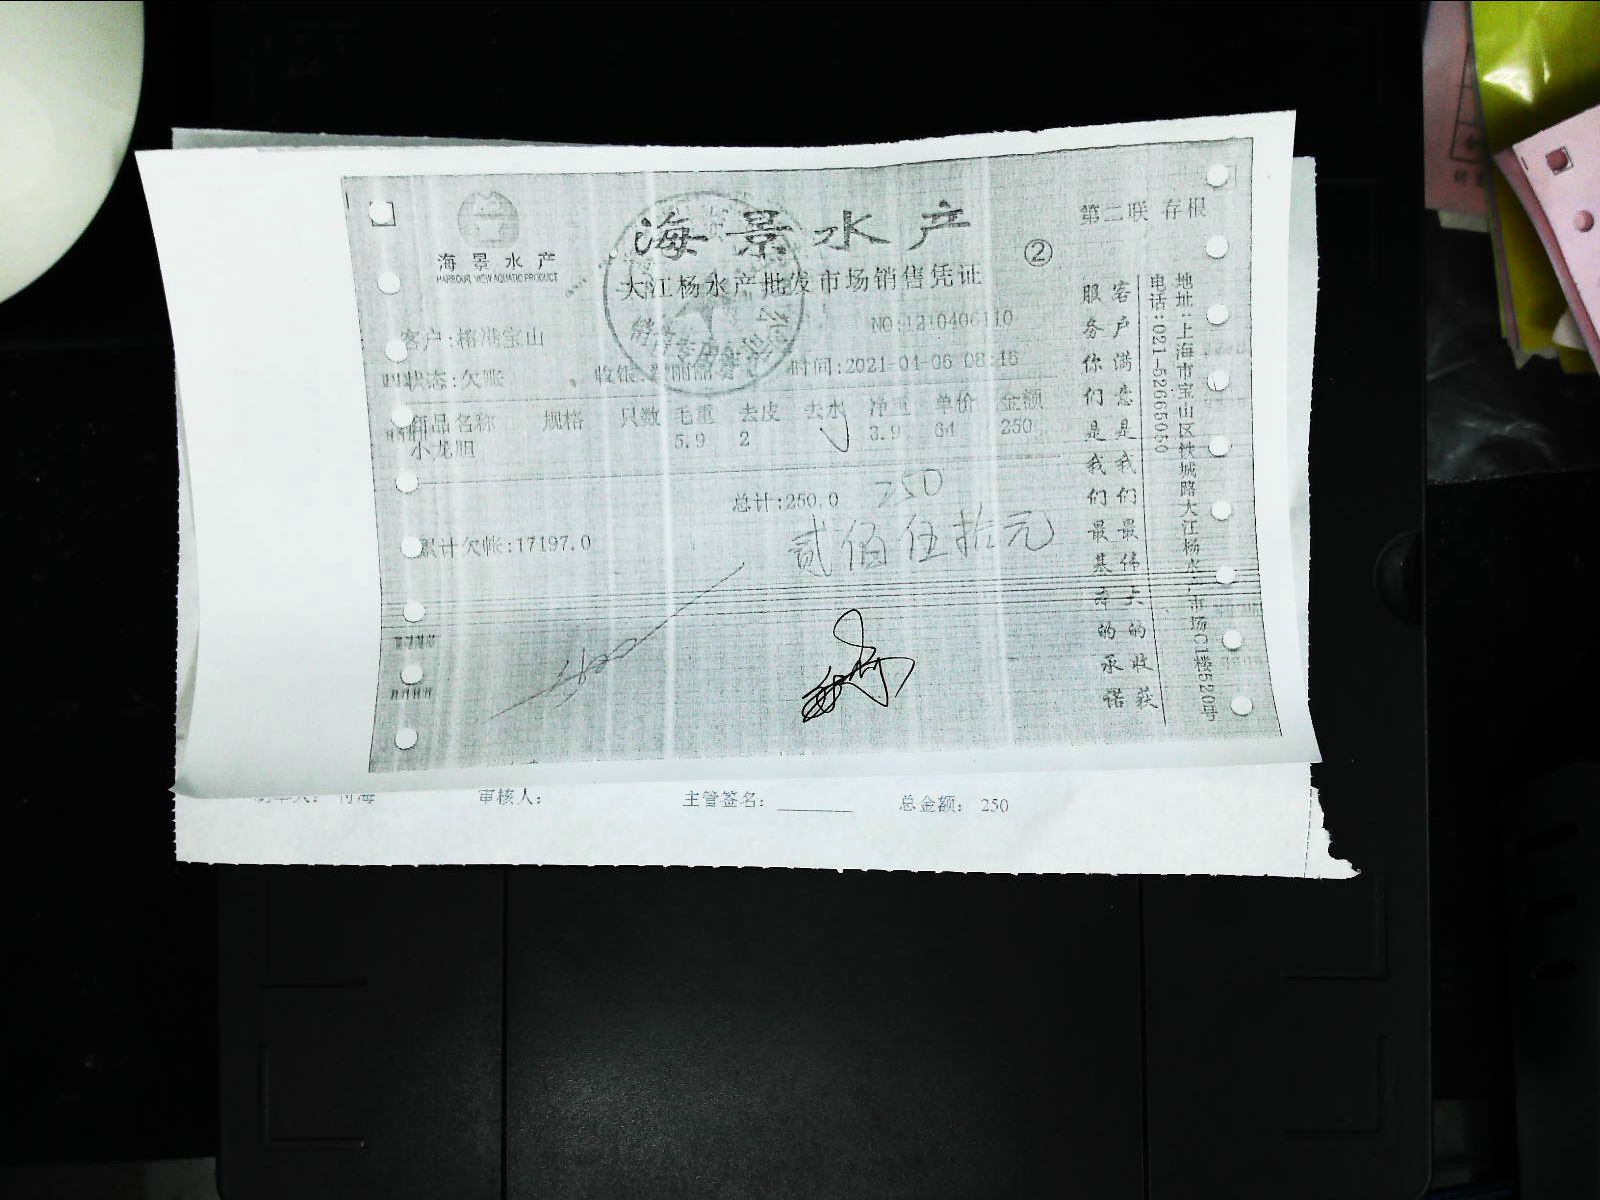 海景水产
HARBOUR VIEW AQUATIC PRODUCT
海景水产
大江杨水产批发市场销售凭证
②
第二联 存根
NO:1210406110
客户:榕港宝山
状态:欠账 收银: 时间:2021-04-06 08:46
商品名称 规格 只数 毛重 去皮 去水 净重 单价 金额
小龙胆 5.9 2 3.9 64 250
总计:250.0 250
累计欠帐:17197.0
贰佰伍拾元
客户满意是我们最伟大的收获
服务你们是我们最基本的承诺
地址:上海市宝山区铁城路大江杨水产市场C1楼520号
电话:021-52665050
制单人: 审核人: 主管签名: 总金额: 250